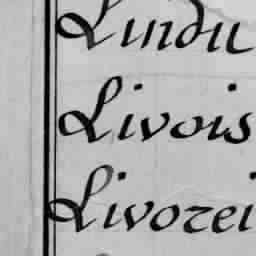 Lindu
Livois
Livorei